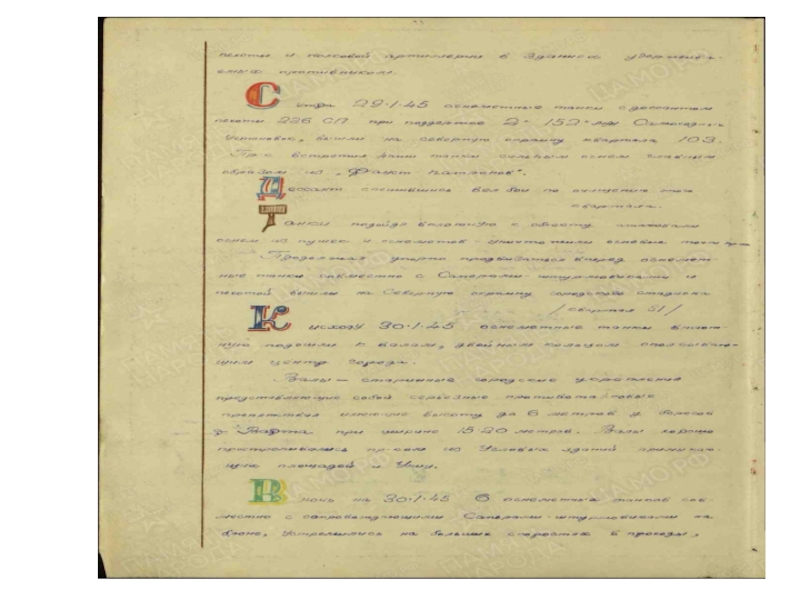 пехоты и полковой артиллерии в зданиях удержива-
емых противником.
С утра 29.1.45 огнеметные танки с десантом
пехоты 226 СП при поддержке 2х 152 м/м Самоходных
Установок, вышли на северную окраину квартала 103.
Пр-к встретил наши танки сильным огнем главным
образом из "Фауст патронов".
Десант спешившись вел бой по очищению этого
квартала.
Танки подойдя вплотную к объекту атаковали
огнем из пушек и огнеметов - уничтожили огневые точки пр-ка
Продолжая упорно продвигаться вперед огнемет-
ные танки совместно с Саперами штурмовиками и
пехотой вышли на Северную окраину городского стадиона
/квартал 51/
К исходу 30.1.45 огнеметные танки вплот-
ную подошли к валам, двойным кольцом опоясываю-
щим центр города.
Валы — старинные городские укрепления
представляющие собой серьезные противотанковые
препятствия имеющие высоту до 6 метров
р. Варта при ширине 15-20 метров. Валы хорошо
простреливались пр-ком из Угловых зданий примыкаю-
щих площадей и Улиц.
В ночь на 30.1.45 6 огнеметных танков сов-
местно с сопровождающими Саперами-штурмовиками на
броне, Устремились на больших скоростях в проходы,
ПАМЯТЬ НАРОДА
ЦАМО РФ